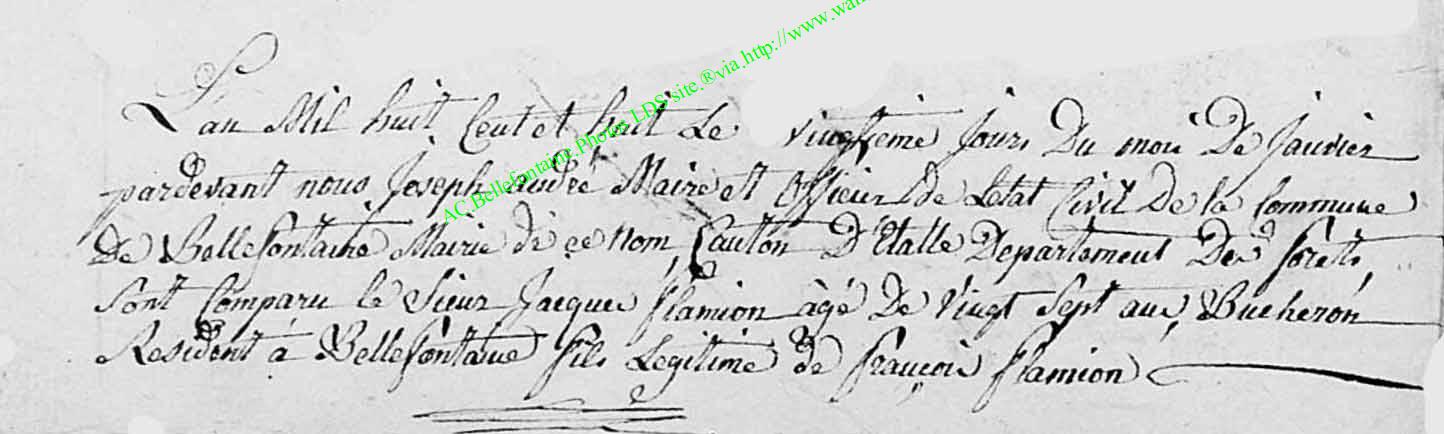 L'an Mil huit Cent et huit Le vingtieme jours Du moi De Janvier
pardevant nous Joseph andré Maire et Officier De Letat Civil De la Commune
De Bellefontaine Mairie de ce nom, Canton D'Etalle Departement Des forêts,
Sont Comparu le Sieur Jacques flamion âgé De Vingt Sept ans, Bucheron
Resident à Bellefontaine fils Legitime de françois flamion
AC.Bellefontaine.Photos LDS site.®via.http://www.wan